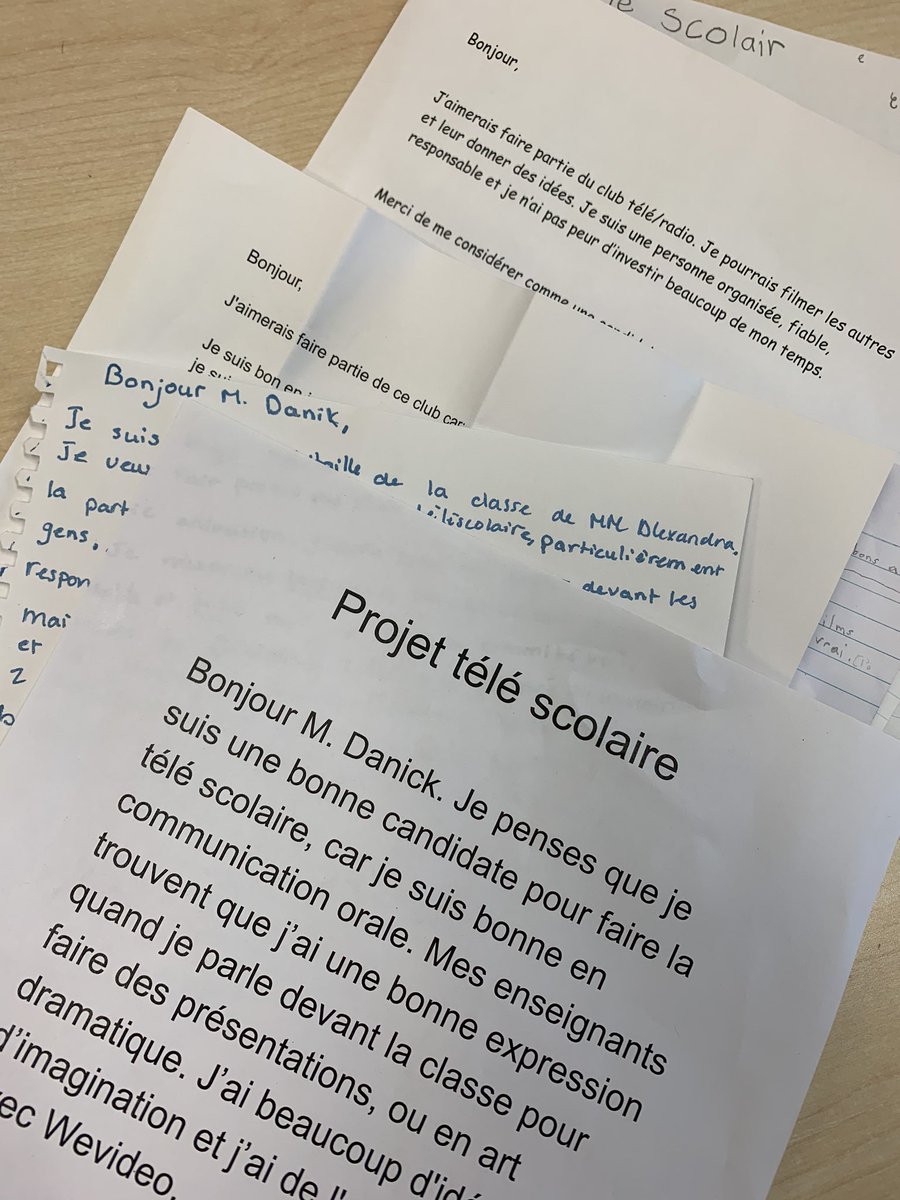 SCOLAIR
Bonjour,
J'aimerais faire partie du club télé/radio. Je pourrais filmer les autres
et leur donner des idées. Je suis une personne organisée, fiable,
responsable et je n'ai pas peur d'investir beaucoup de mon temps.
Merci de me considérer comme une
Bonjour,
J'aimerais faire partie de ce club car
Je suis bon en
je suis
Bonjour M. Danik,
Je suis de la classe de MM Alexandra.
Je veux téléscolaire, particulièrement
la part devant les
gens,
respon
mai
et
2
films
vrai.
Projet télé scolaire
Bonjour M. Danick. Je penses que je
suis une bonne candidate pour faire la
télé scolaire, car je suis bonne en
communication orale. Mes enseignants
trouvent que j'ai une bonne expression
quand je parle devant la classe pour
faire des présentations, ou en art
dramatique. J'ai beaucoup d'idé
d'imagination et j'ai de l'
ec Wevideo.